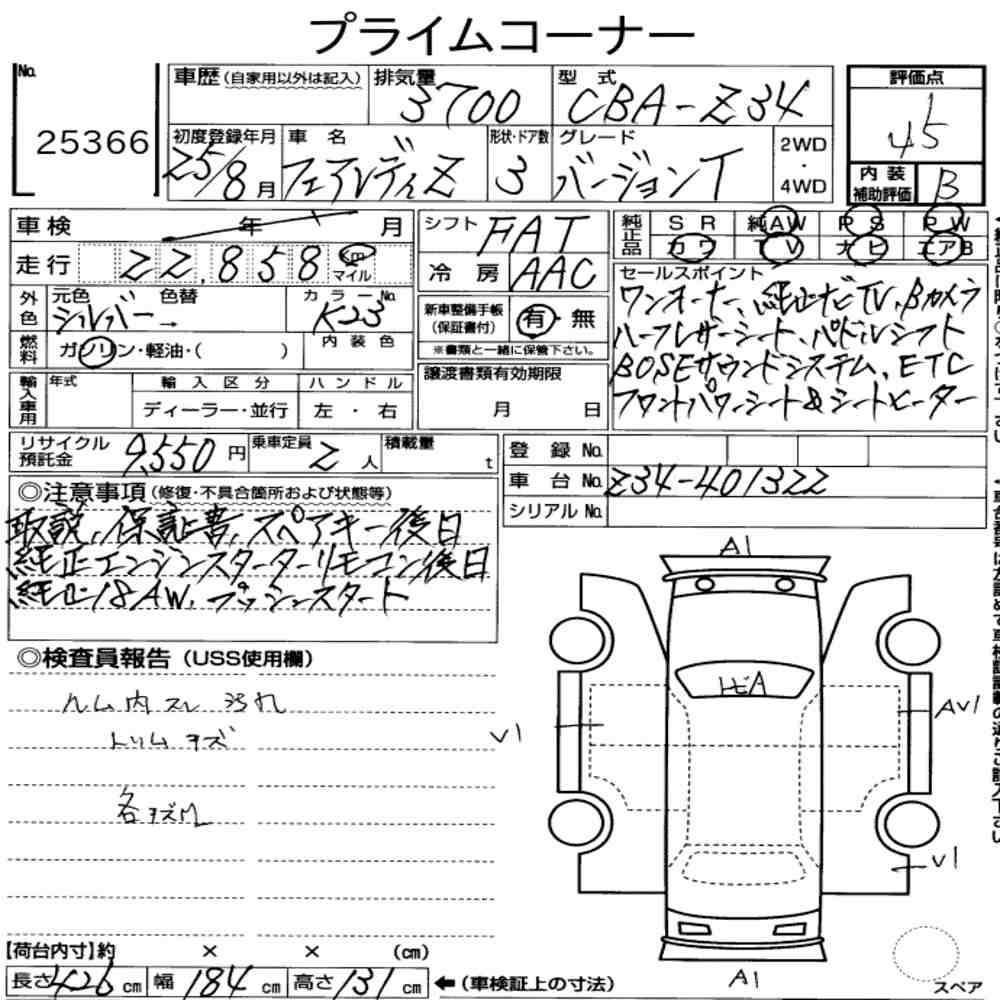 プライムコーナー
No.
25366
車歴(自家用以外は記入)
排気量
3700
型式
CBA-Z34
評価点
45
初度登録年月
25/8月
車名
フェアレディZ
形状・ドア数
3
グレード
バージョンT
2WD
・
4WD
内装
補助評価
B
車検 年 月
シフト
FAT
純正品
SR 純AW PS PW
カワ TV ナビ エアB
走行
22,858 Km マイル
冷房
AAC
セールスポイント
ワンオーナー、純正ナビTV、Bカメラ
ハーフレザーシート、パドルシフト
BOSEサウンドシステム、ETC
フロントパワーシート&シートヒーター
外色
元色
シルバー
色替
カラーNo.
K23
新車整備手帳
(保証書付)
有・無
※書類と一緒に保管下さい。
燃料
ガソリン・軽油・( )
内装色
譲渡書類有効期限
月 日
輸入車用
年式
輸入区分
ハンドル
ディーラー・並行
左・右
リサイクル
預託金
9,550円
乗車定員
2人
積載量
t
登録No.
車台No.
Z34-401322
シリアルNo.
◎注意事項(修復・不具合箇所および状態等)
取説、保証書、スペアキー後日
純正エンジンスターターリモコン後日
純正18AW、プッシュスタート
◎検査員報告(USS使用欄)
ルーム内スレ 汚れ
トリムキズ
各キズ凹
A1
トビA
V1
AV1
V1
A1
スペア
【荷台内寸】約 × × (cm)
長さ426cm 幅184cm 高さ131cm
←(車検証上の寸法)